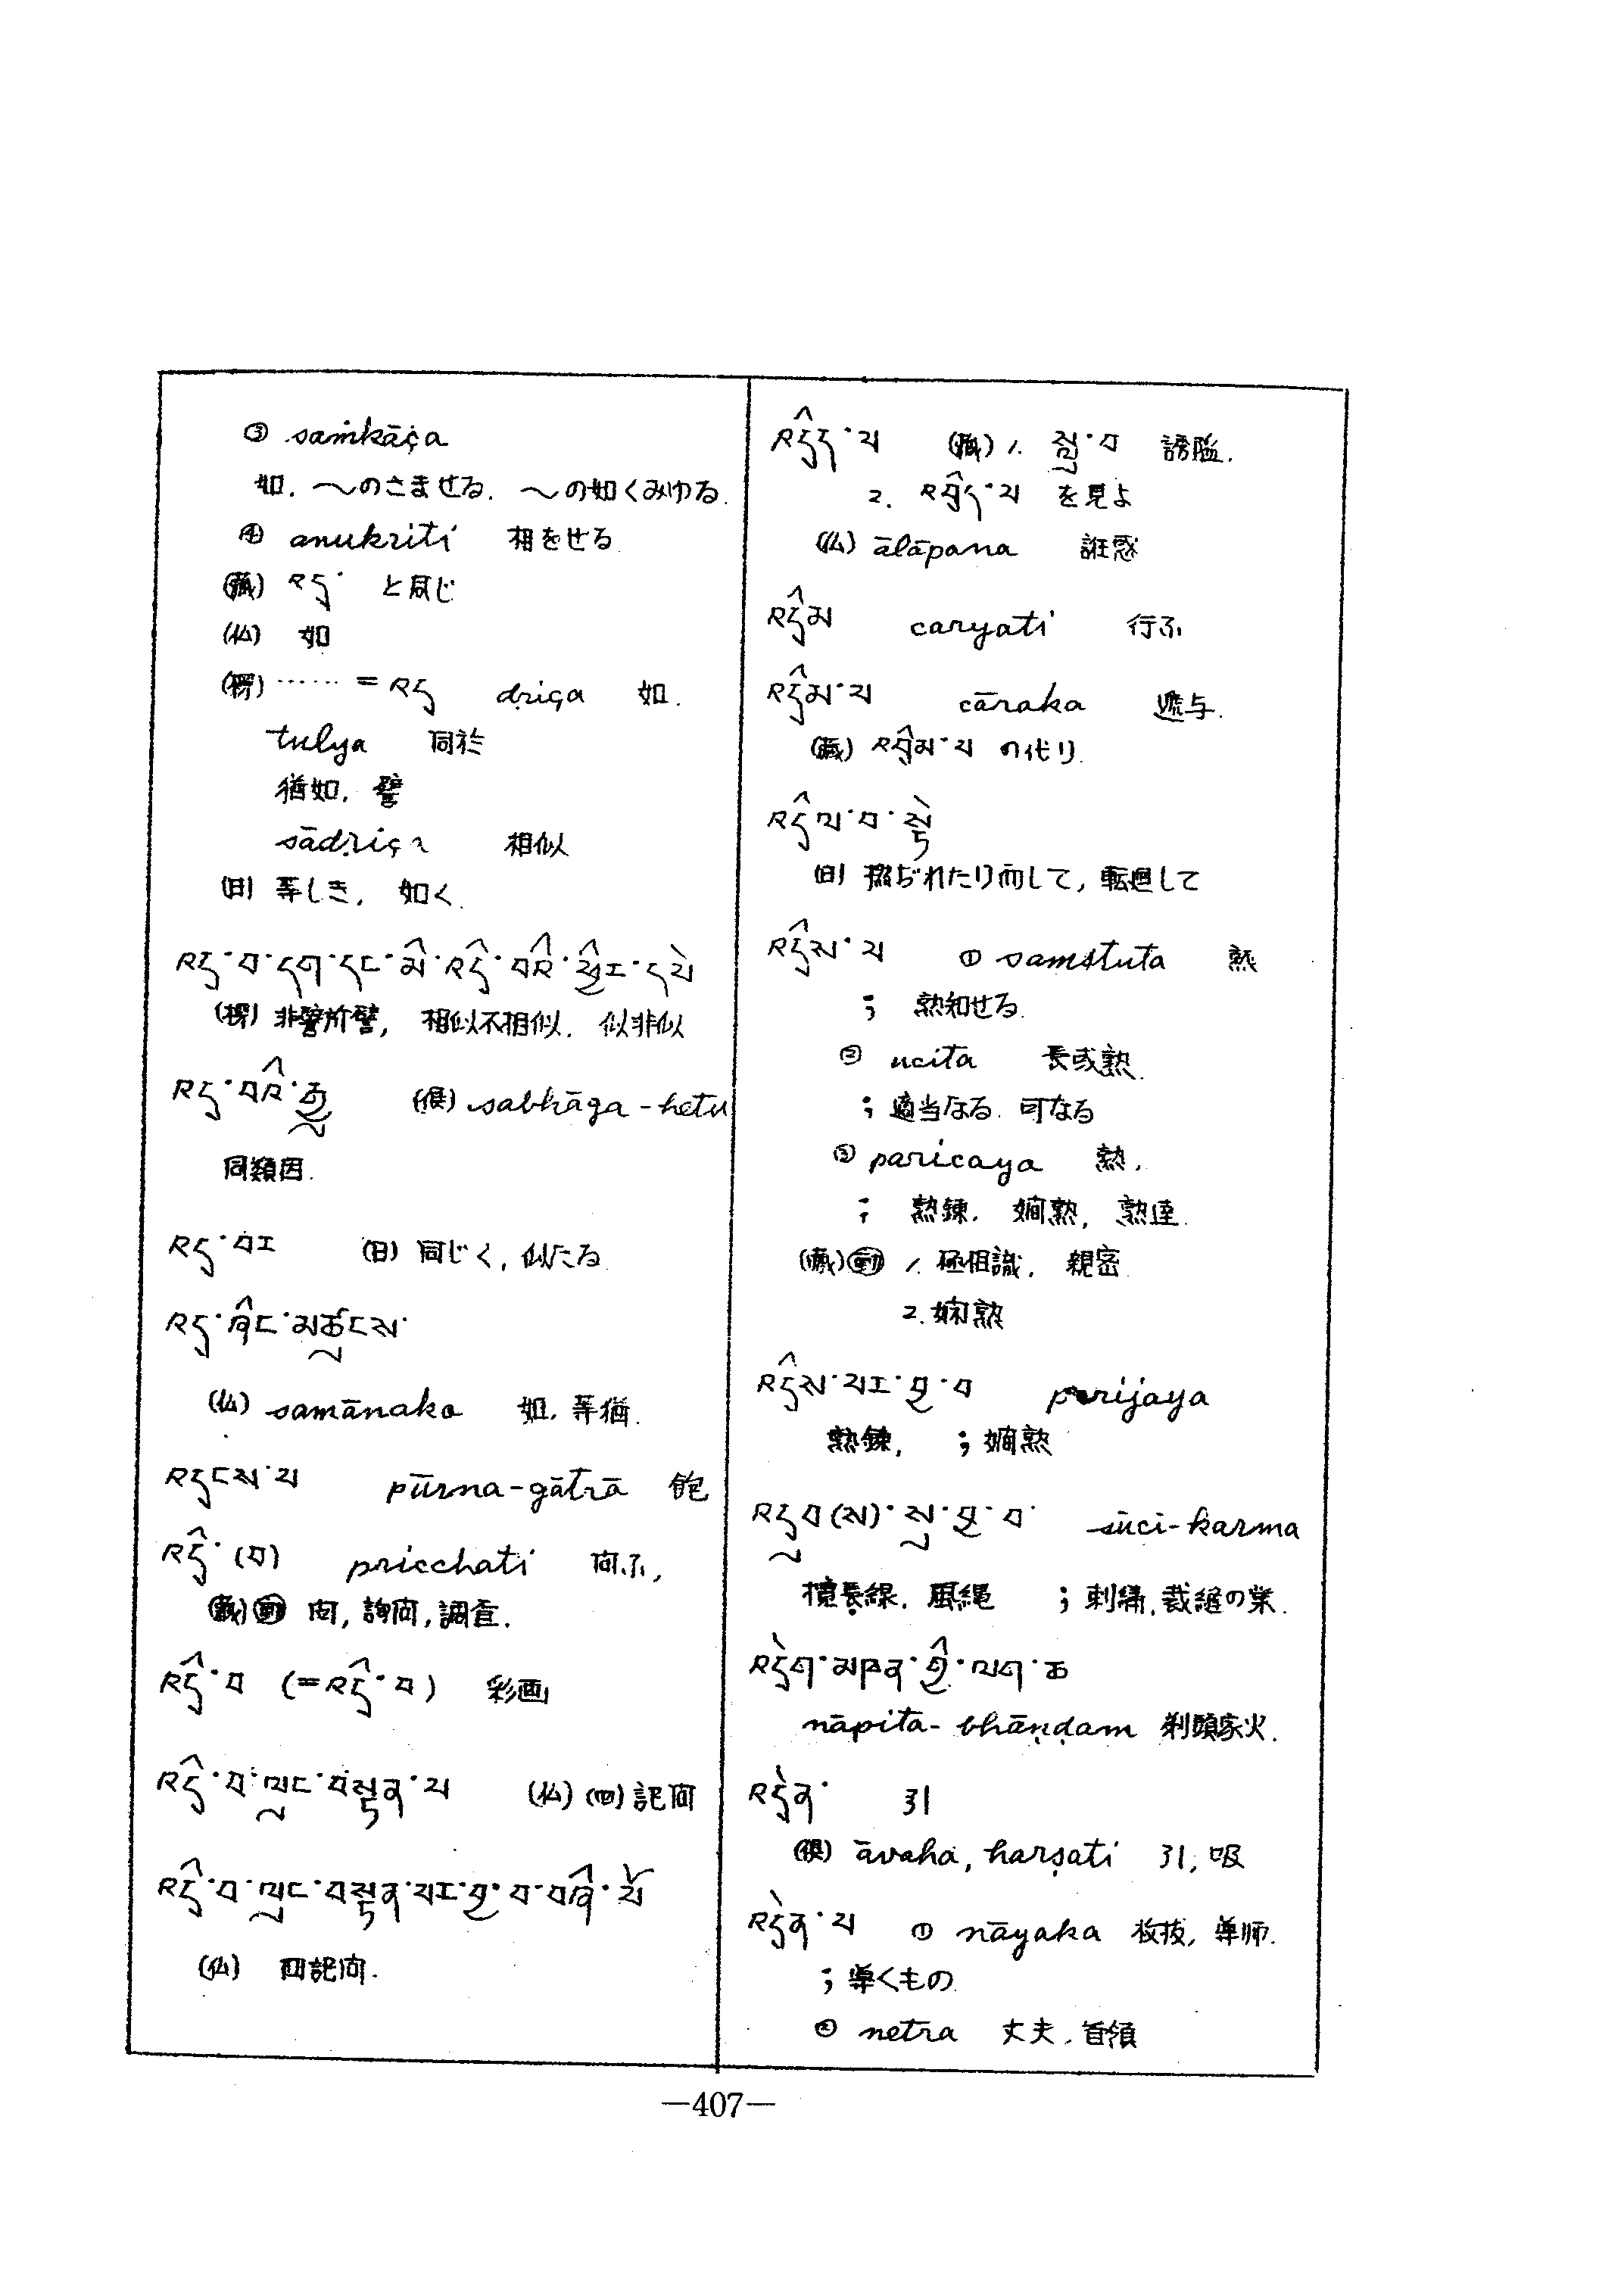 ③ saṁkāça
如. 〜のさませる. 〜の如くみゆる.
④ anukriti 相をせる
(藏) འདྲ་ と同じ
(仏) 如
(楞) …… = འདྲ dṛiça 如.
tulya 同於
猶如. 譬
sādṛiça 相似
(日) 等しき. 如く.
འདྲ་བ་དག་དང་མི་འདྲ་བའི་ཕྱིར་དཔེ
(楞) 非譬所譬, 相似不相似. 似非似
འདྲ་བའི་རྒྱུ (倶) sabhāga-hetu
同類因.
འདྲ་བར (日) 同じく, 似たる
འདྲ་ཞིང་མཚུངས་
(仏) samānaka 如. 等猶.
འདྲངས་པ pūrna-gātrā 飽
འདྲི་(བ) pricchati 问ふ,
(藏) 動 问, 詢问, 調査.
འདྲི་བ (=འདྲི་བ) 彩画
འདྲི་བ་ལུང་བསྟན་པ (仏) (四) 記问
འདྲི་བ་ལུང་བསྟན་པར་བྱ་བ་བཞི་པོ
(仏) 四記问.
འདྲིད་པ (藏) 1. སླུ་བ 誘脇.
2. འབྲིད་པ を見よ
(仏) ālāpana 誑惑
འདྲིམ caryati 行ふ
འདྲིམ་པ cāraka 逓与.
(藏) འབྲིམ་པ の代り.
འདྲིལ་བ་སྟེ
(日) 捩ぢれたり而して, 転廻して
འདྲིས་པ ① saṁstuta 熟
; 熟知せる.
② ucita 長或熟.
; 適当なる. 可なる
③ paricaya 熟.
; 熟錬. 嫺熟, 熟達.
(藏) 動 1. 極相識. 親密.
2. 嫺熟
འདྲིས་པར་བྱ་བ parijaya
熟錬, ; 嫺熟
འདྲུབ(ས)་སུ་བྱ་བ་ sūci-karma
擅長線. 風縄 ; 刺繍, 裁縫の業.
འདྲེག་མཁན་གྱི་ལག་ཆ
nāpita-bhāṇḍam 剃頭家火.
འདྲེན་ 引
(倶) āvaha, harṣati 引, 吸
འདྲེན་པ ① nāyaka 枚抜, 導师.
; 導くもの
② netra 丈夫. 首領
—407—